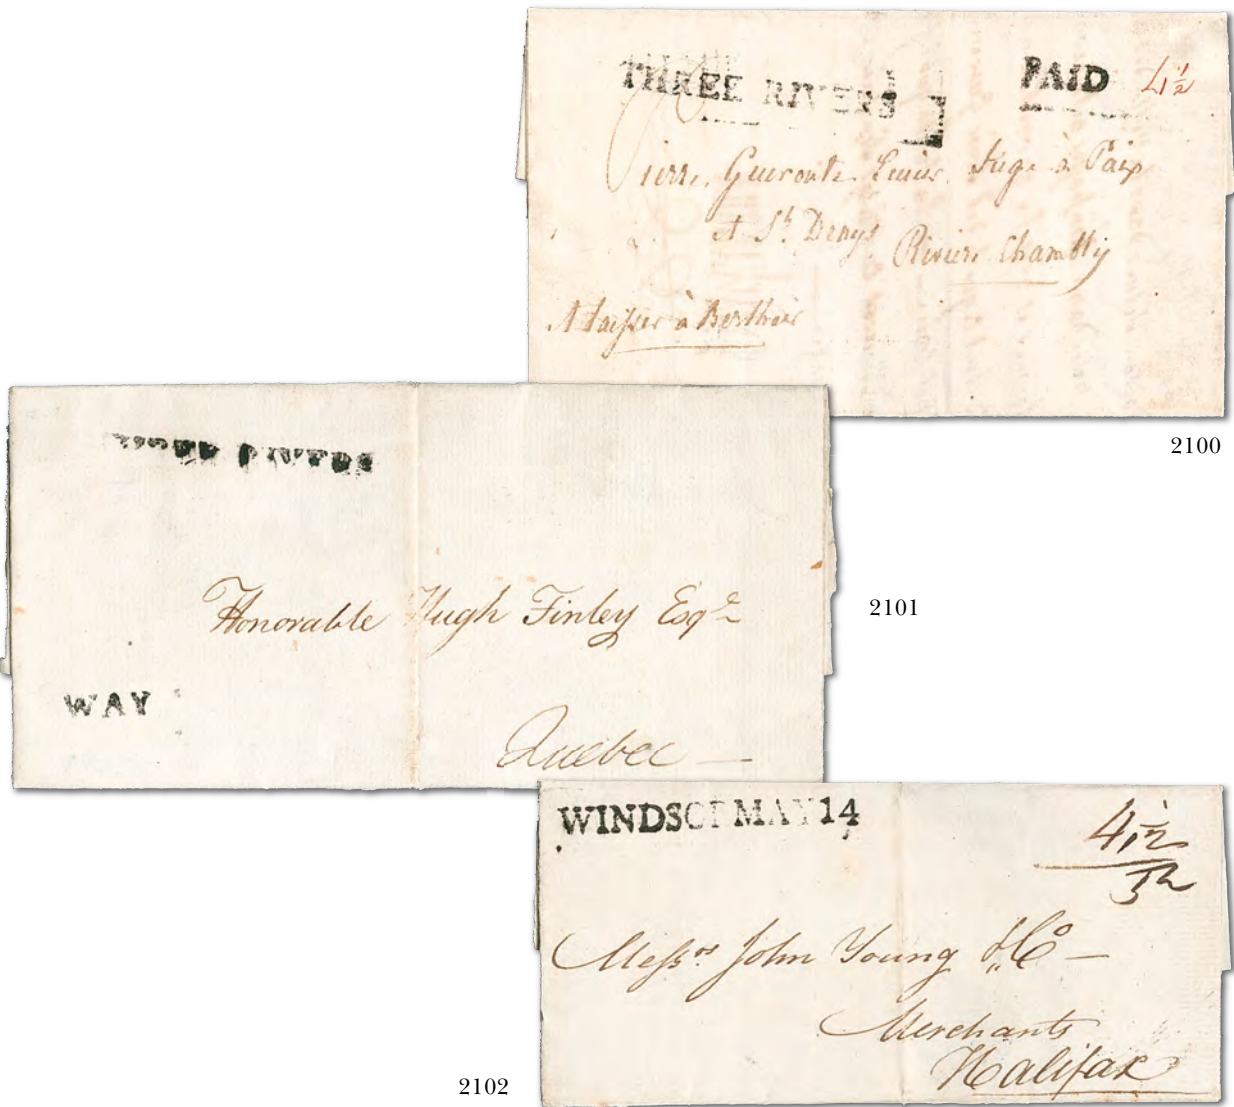 THREE RIVERS PAID 4½
Pierre Gueroute Ecuier Juge à Paix
A St Denys Riviere Chambly
A laisser à Berthier
2100
Honorable Hugh Finley Esqr
2101
WAY
Quebec —
WINDSOR MAY 14
4½
Messrs John Young & Co —
Merchants
Halifax
2102